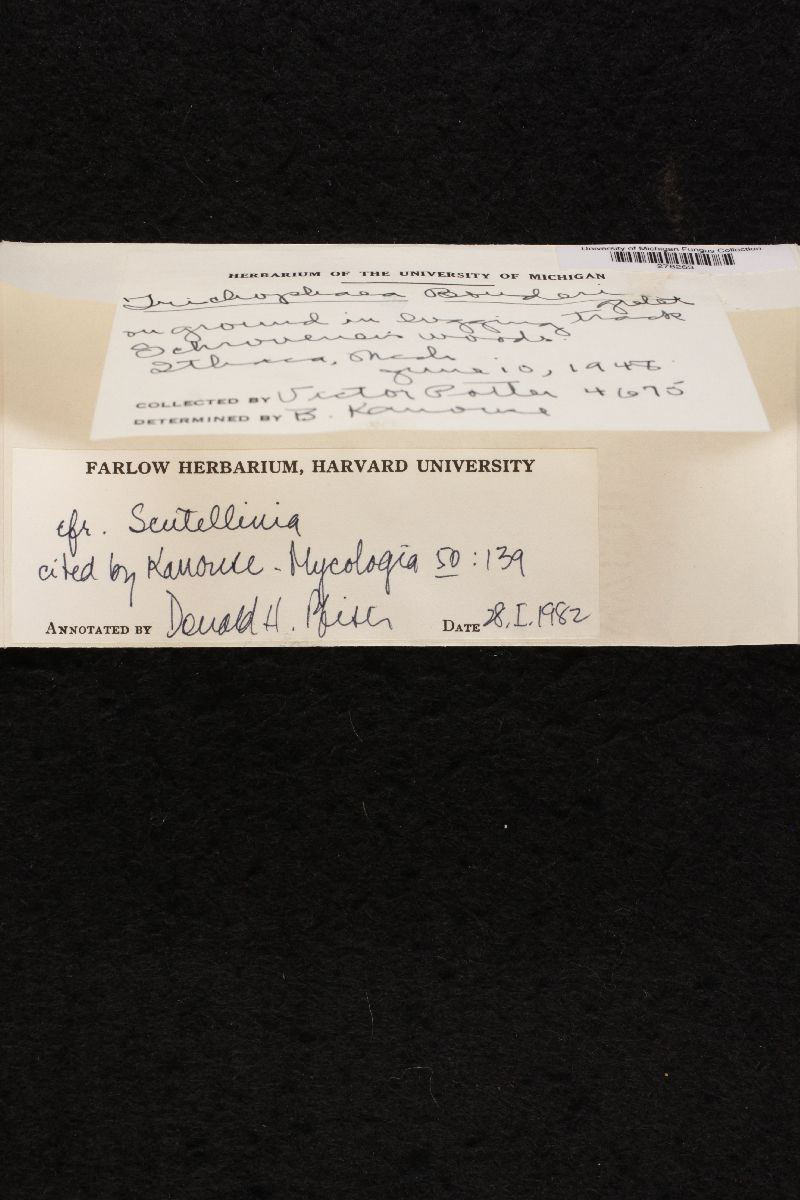 University of Michigan Fungus Collection
HERBARIUM OF THE UNIVERSITY OF MICHIGAN
Trichophaea Boudieri
on ground in logging track
woods.
Ithaca, Mich
June 10, 1946
COLLECTED BY Victor Potter 4675
DETERMINED BY B. Kanouse
FARLOW HERBARIUM, HARVARD UNIVERSITY
cfr. Scutellinia
cited by Kanouse - Mycologia 50:139
ANNOTATED BY Donald H. Pfister DATE 28.I.1982